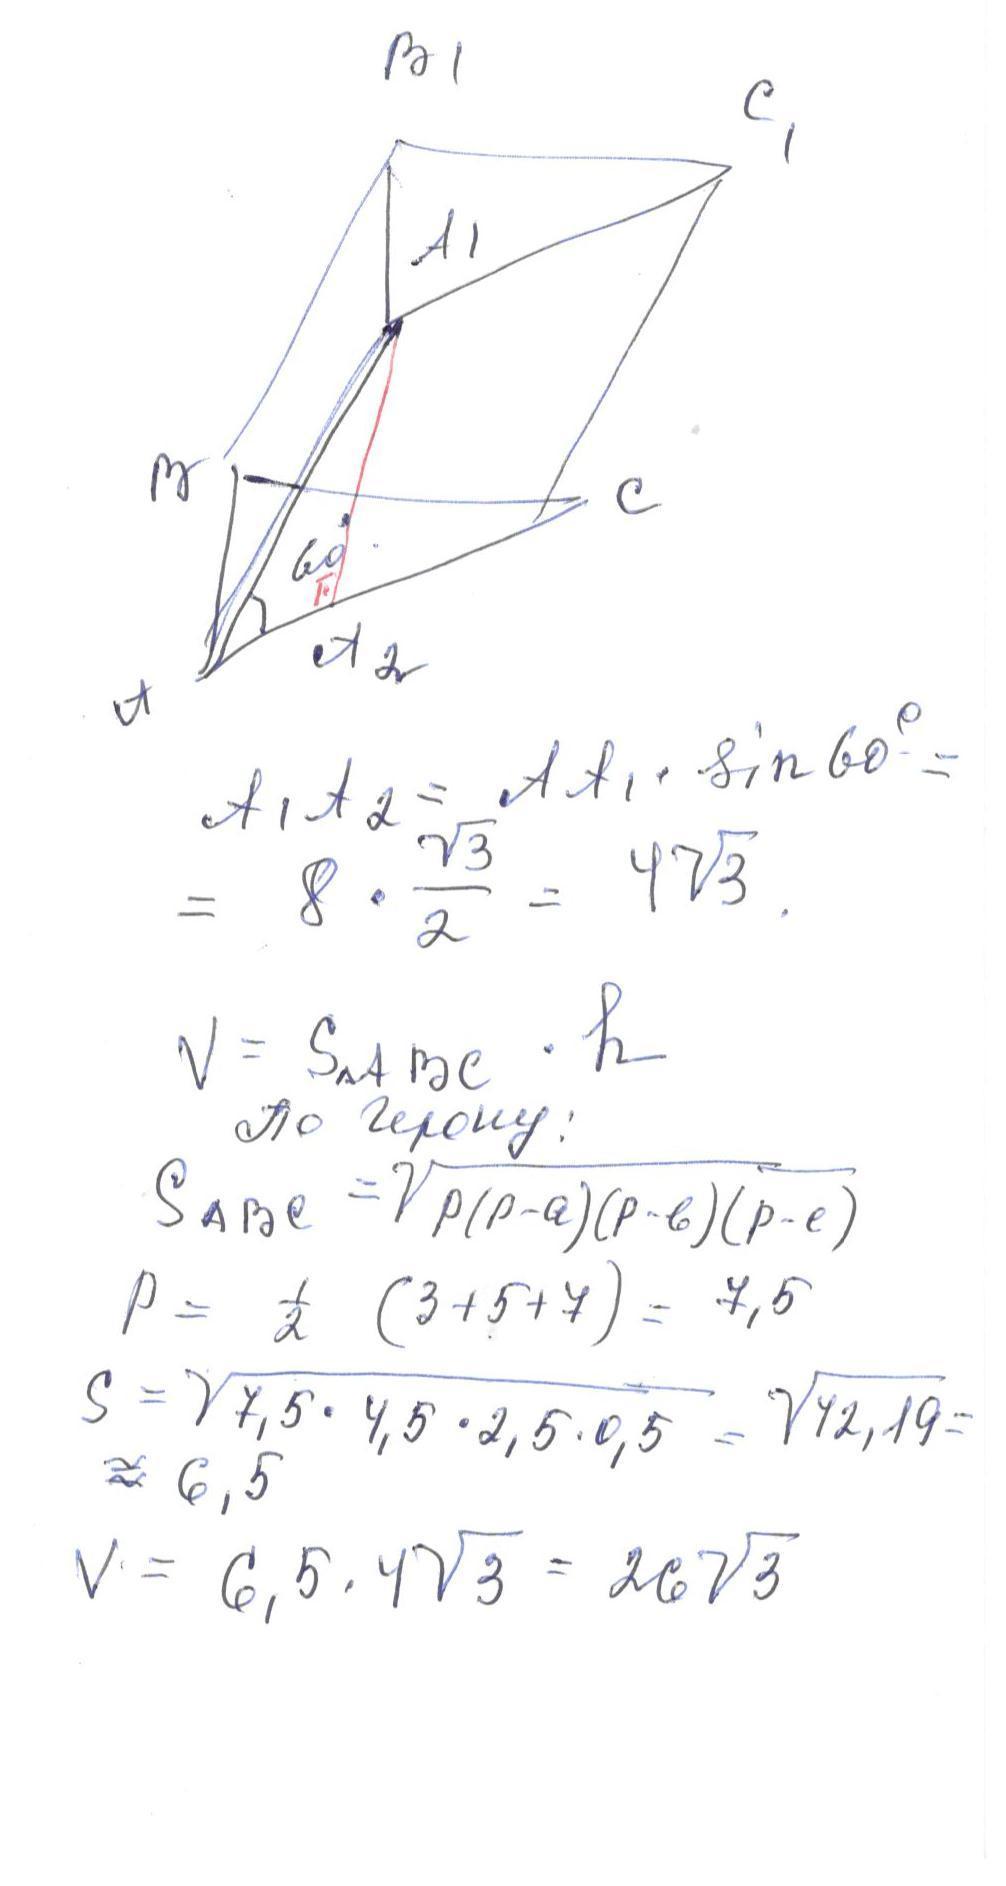 B1
C1
A1
B
C
60°
A2
A
A1A2 = AA1 · sin 60° =
= 8 · √3/2 = 4√3.
V = S△ABC · h
По Герону:
SABC = √p(p-a)(p-в)(p-c)
P = 1/2 (3+5+7) = 7,5
S = √7,5·4,5·2,5·0,5 = √42,19 =
≈ 6,5
V = 6,5·4√3 = 26√3